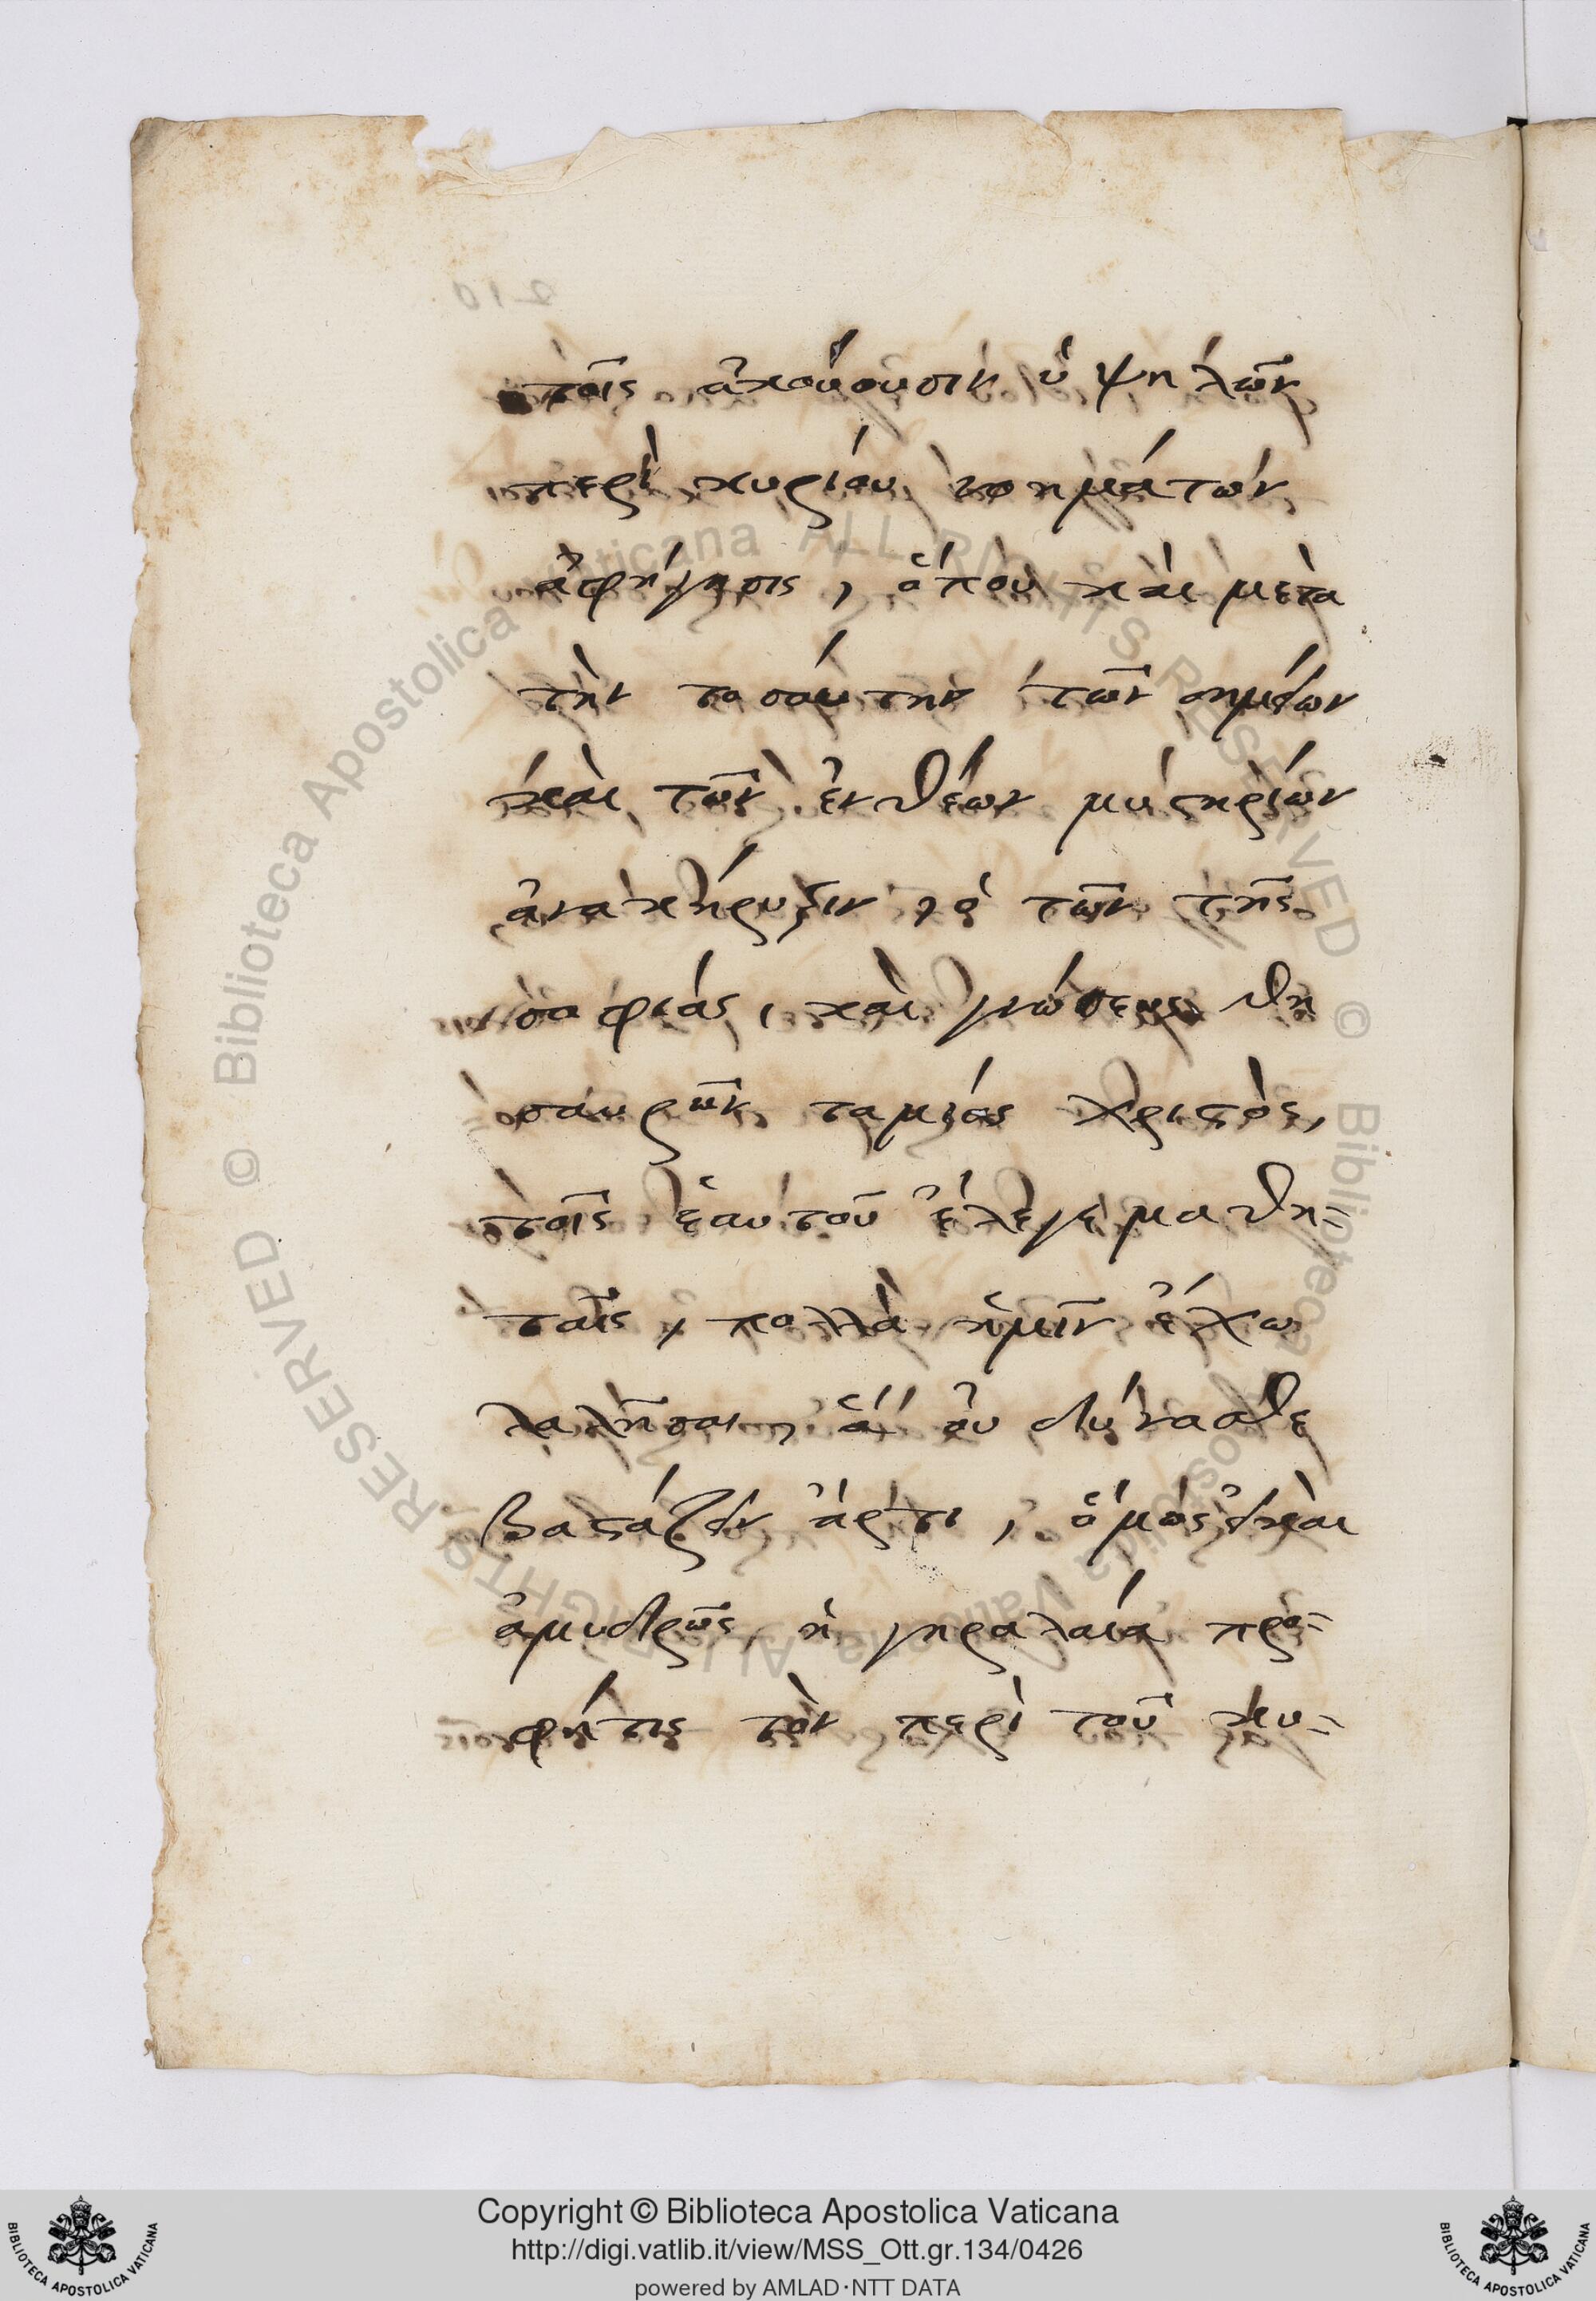 τοῖς ἀκούουσιν ὑψηλῶν
περὶ κυρίου νοημάτων
ἀφήγησις, ὅπου καὶ μετὰ
τὴν τοσαύτην τῶν σημείων
καὶ τῶν ἐνθέων μυστηρίων
ἀνακήρυξιν, ὁ τῶν τῆς
σοφίας, καὶ γνώσεως θη
σαυρῶν ταμίας χριστὸς,
τοῖς ἑαυτοῦ ἔλεγε μαθη-
ταῖς, πολλὰ ἡμῖν ἔχω
λαλῆσαι, ἃ οὐ δύνασθε
βαστάζειν ἄρτι, ὅμως εἰ καὶ
ἀμυδρῶς ἡ γηραλαιὰ προ-
φῆτις τὸν περὶ τοῦ κυ-
Copyright © Biblioteca Apostolica Vaticana
http://digi.vatlib.it/view/MSS_Ott.gr.134/0426
powered by AMLAD·NTT DATA
BIBLIOTECA APOSTOLICA VATICANA
BIBLIOTECA APOSTOLICA VATICANA
© Biblioteca Apostolica Vaticana ALL RIGHTS RESERVED
© Biblioteca Apostolica Vaticana ALL RIGHTS RESERVED